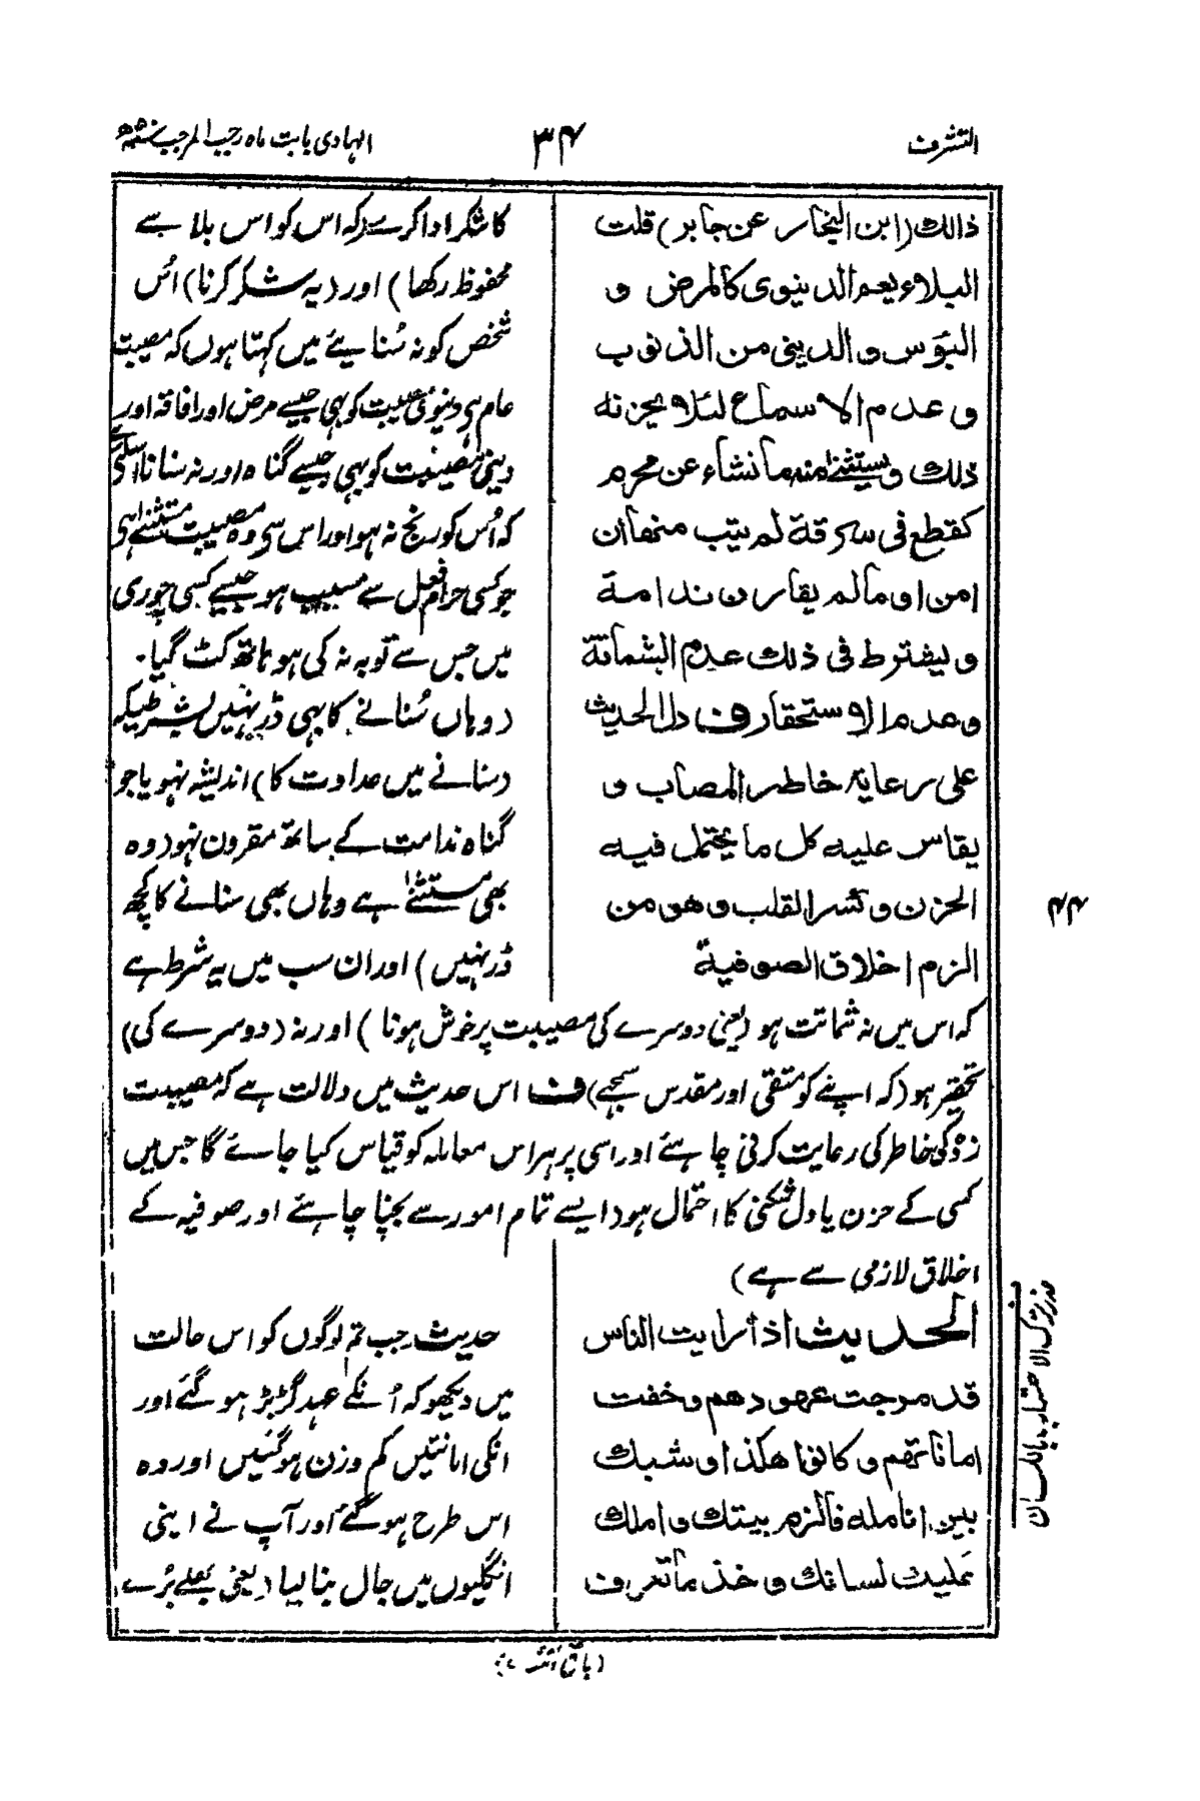 التشرف
۳۴
الہادی بابت ماہ رجب المرجب
ذالك (ابن النجار عن جابر) قلت
البلاء يعم الدنيوى كالمرض و
البؤس و الدينى من الذنوب
و عدم الاسماع لئلا يحزنه
ذلك و يستثنى منه ما نشاء عن محرم
كقطع فى سرقة لم يتب منها ان
امن او ما لم يقارن ندامة
و ليشترط فى ذلك عدم الشماتة
و عدم الاستحقار ف دل الحديث
على رعاية خاطر المصاب و
يقاس عليه كل ما يحتمل فيه
الحزن و كسر القلب و هو من
الزم اخلاق الصوفية
کا شکر ادا کرے (کہ اس کو اس بلا سے
محفوظ رکھا) اور (یہ شکر کرنا) اُس
شخص کو نہ سُنایئے میں کہتا ہوں کہ مصیبت
عام ہی دنیوی مصیبت کو بہی جیسے مرض اور افاقہ اور
دینی مصیبت کو بہی جیسے گناہ اور نہ سنانا اسلئے
کہ اُس کو رنج نہ ہو اور اس سی وہ مصیبت مستثنےٰ ہی
جو کسی حرام فعل سے مسبب ہو جیسے کسی چوری
میں جس سے توبہ نہ کی ہو ہاتھ کٹ گیا۔
(وہاں سُنانے کا بہی ڈر نہیں بشرطیکہ
(سنانے میں عداوت کا) اندیشہ نہو یا جو
گناہ ندامت کے ساتھ مقرون نہو (وہ
بھی مستثنےٰ ہے وہاں بھی سنانے کا کچھ
ڈر نہیں) اور ان سب میں یہ شرط ہے
کہ اس میں نہ شماتت ہو (یعنی دوسرے کی مصیبت پر خوش ہونا) اور نہ (دوسرے کی)
تحقیر ہو (کہ اپنے کو متقی اور مقدس سمجے) ف اس حدیث میں دلالت ہے کہ مصیبت
زدہ کی خاطر کی رعایت کرنی چاہئے اور اسی پر ہر اس معاملہ کو قیاس کیا جائے گا جس میں
کسی کے حزن یا دل شکنی کا احتمال ہو (ایسے تمام امور سے بچنا چاہئے اور صوفیہ کے
اخلاق لازمی سے ہے)
۴۴
الحديث اذا رايت الناس
قد مرجت عهودهم و خفت
اماناتهم و كانوا هكذا و شبك
بين انامله فالزم بيتك و املك
عليك لسانك و خذ ما تعرف
حدیث جب تم لوگوں کو اس حالت
میں دیکھو کہ اُنکے عہد گڑبڑ ہو گئے اور
انکی امانتیں کم وزن ہوگئیں اور وہ
اس طرح ہو گئے اور آپ نے اپنی
انگلیوں میں جال بنا لیا (یعنی بھلے بُرے
(باقی آئندہ)